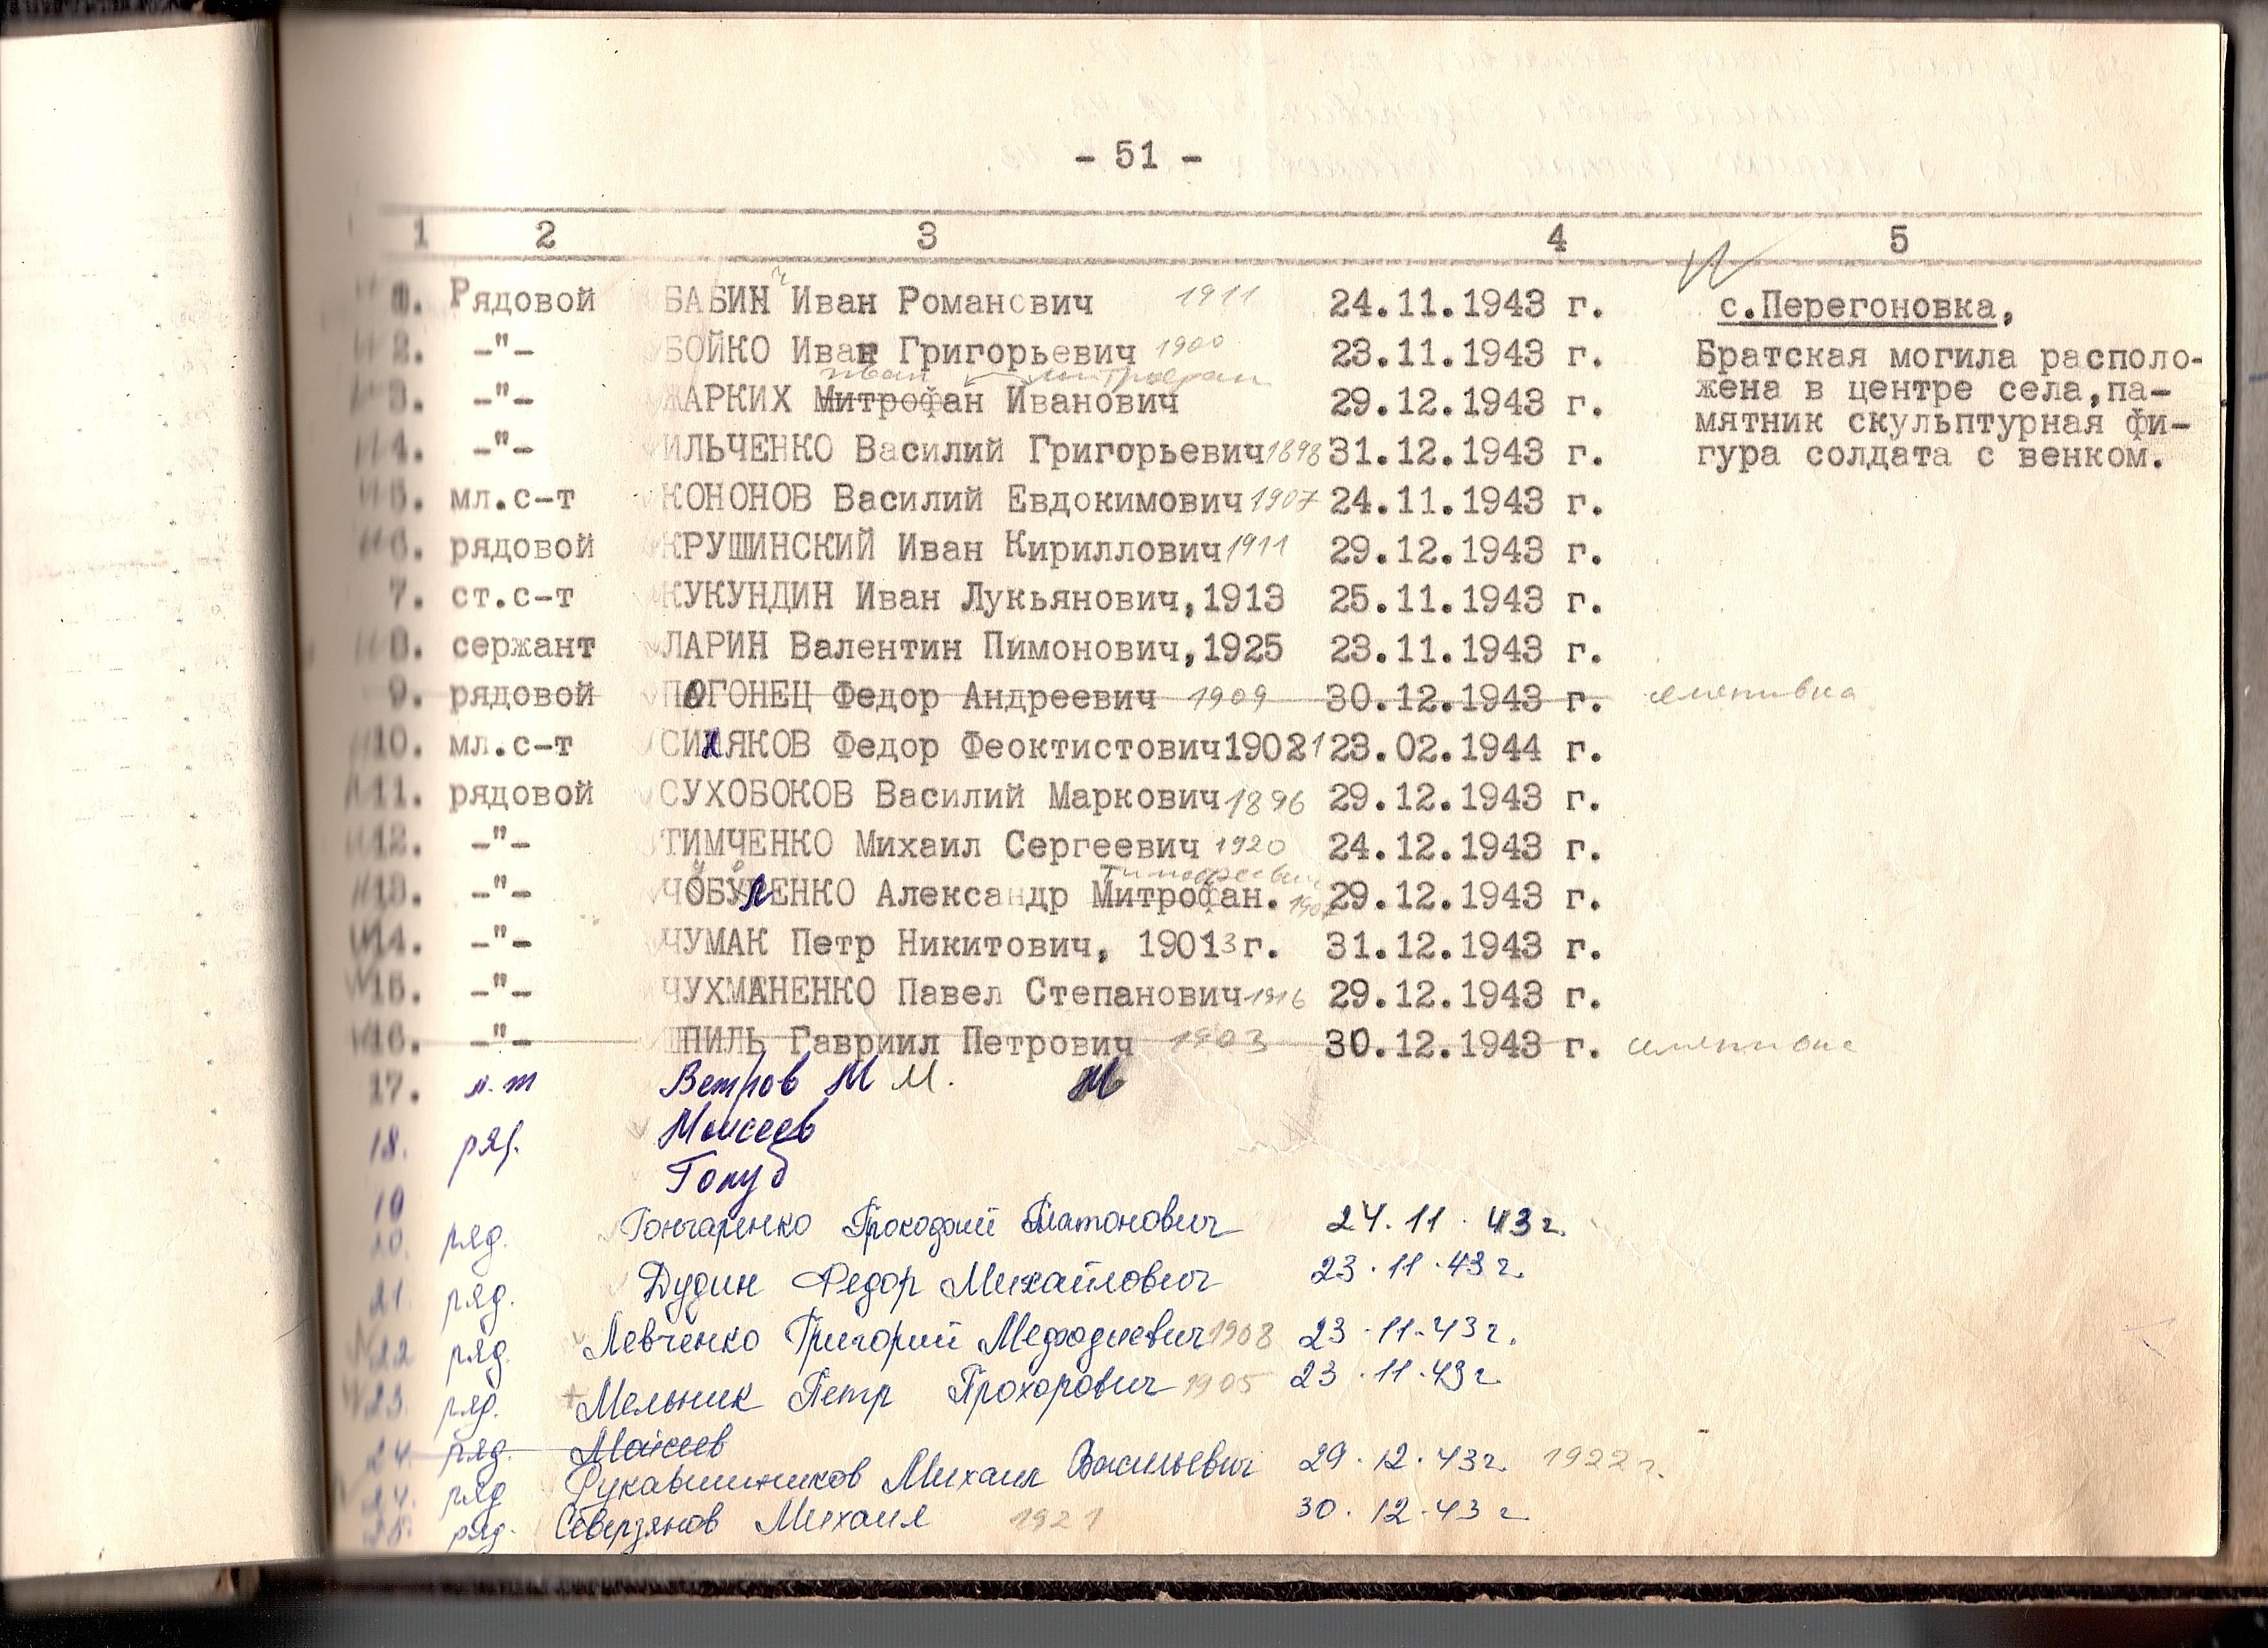 - 51 -
1 2 3 4 5
1. Рядовой БАБИН Иван Романович 1911 24.11.1943 г. с.Перегоновка,
2. -"- БОЙКО Иван Григорьевич 1900 23.11.1943 г. Братская могила располо-
Иван Митрофан
3. -"- ЖАРКИХ Митрофан Иванович 29.12.1943 г. жена в центре села,па-
мятник скульптурная фи-
4. -"- ИЛЬЧЕНКО Василий Григорьевич 1898 31.12.1943 г. гура солдата с венком.
5. мл.с-т КОНОНОВ Василий Евдокимович 1907 24.11.1943 г.
6. рядовой КРУШИНСКИЙ Иван Кириллович 1911 29.12.1943 г.
7. ст.с-т КУКУНДИН Иван Лукьянович,1913 25.11.1943 г.
8. сержант ЛАРИН Валентин Пимонович,1925 23.11.1943 г.
9. рядовой ПОГОНЕЦ Федор Андреевич 1909 30.12.1943 г.
10. мл.с-т Федор Феоктистович 23.02.1944 г.
11. рядовой СУХОБОКОВ Василий Маркович 1896 29.12.1943 г.
12. -"- ТИМЧЕНКО Михаил Сергеевич 1920 24.12.1943 г.
Тимофеевич
13. -"- Александр Митрофан. 29.12.1943 г.
14. -"- ЧУМАК Петр Никитович, 19013 г. 31.12.1943 г.
15. -"- ЧУХМАНЕНКО Павел Степанович 1916 29.12.1943 г.
16. -"- ШПИЛЬ Гавриил Петрович 1903 30.12.1943 г.
17. л-т Ветров М М.
18. ряд. Моисеев
19 Голуб
20. ряд. Гончаренко Прокофий Платонович 24.11.43 г.
21. ряд. Дудин Федор Михайлович 23.11.43 г.
22 ряд. Левченко Григорий Мефодиевич 1908 23.11.43 г.
23. ряд. Мельник Петр Прохорович 1905 23.11.43 г
24. ряд. Моисеев
24. ряд Рукавишников Михаил Васильевич 29.12.43 г. 1922 г.
25. ряд. Северзянов Михаил 1921 30.12.43 г